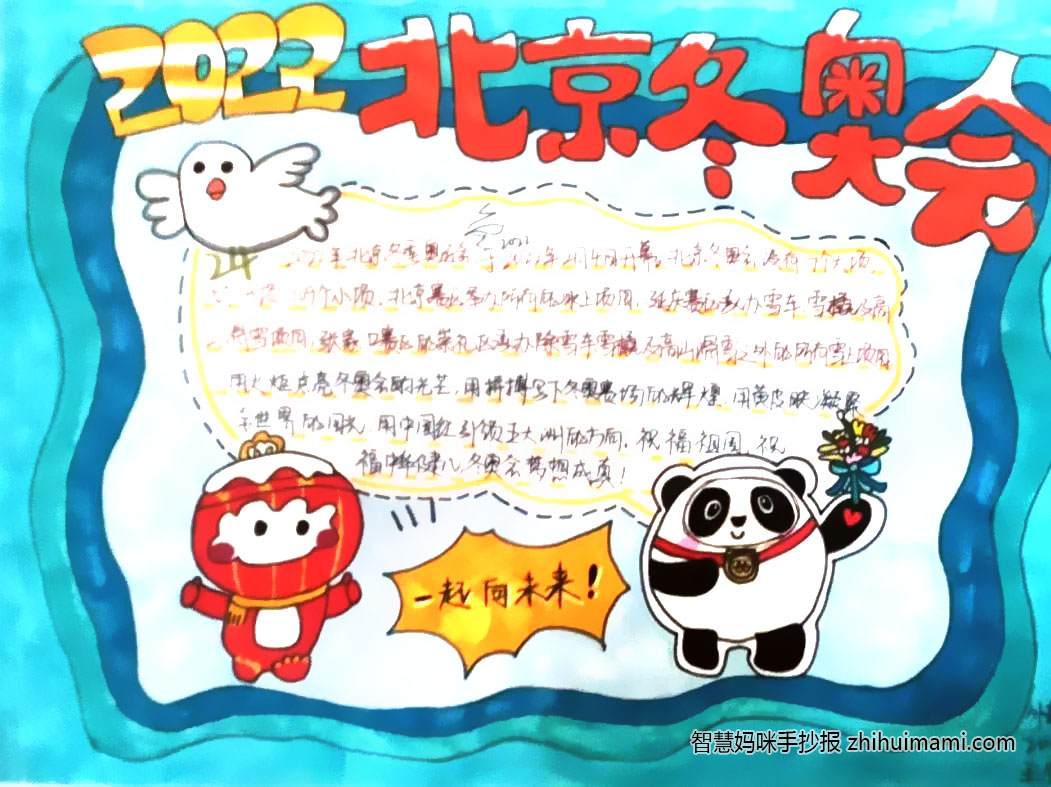 2022
北京冬奥会
2022年北京冬季奥运会于2022年2月4日开幕,北京冬奥会设有7个大项
109个小项。北京赛区承办所有的冰上项目,延庆赛区承办雪车、雪橇及高
山滑雪项目,张家口赛区的崇礼区承办除雪车雪橇及高山滑雪之外的所有雪上项目
用火炬点亮冬奥会的光芒,用拼搏写下冬奥赛场的辉煌,用黄皮肤凝聚
全世界的目光,用中国红引领五大洲的方向。祝福祖国,祝
福中华健儿冬奥会梦想成真!
一起向未来!
智慧妈咪手抄报 zhihuimami.com